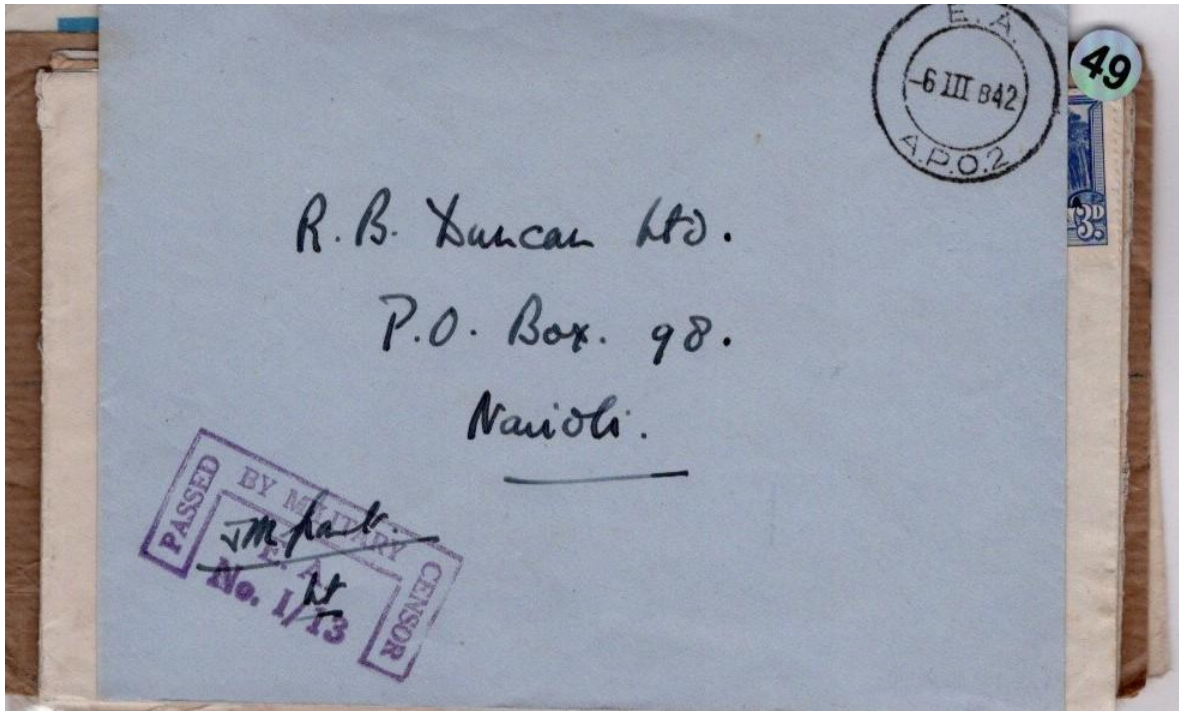 E. A.
-6 III B42
A.P.O.2
49
3D
R. B. Duncan Ltd.
P.O. Box. 98.
Nairobi.
PASSED BY MILITARY CENSOR
E. A.
No. 1/13
Lt